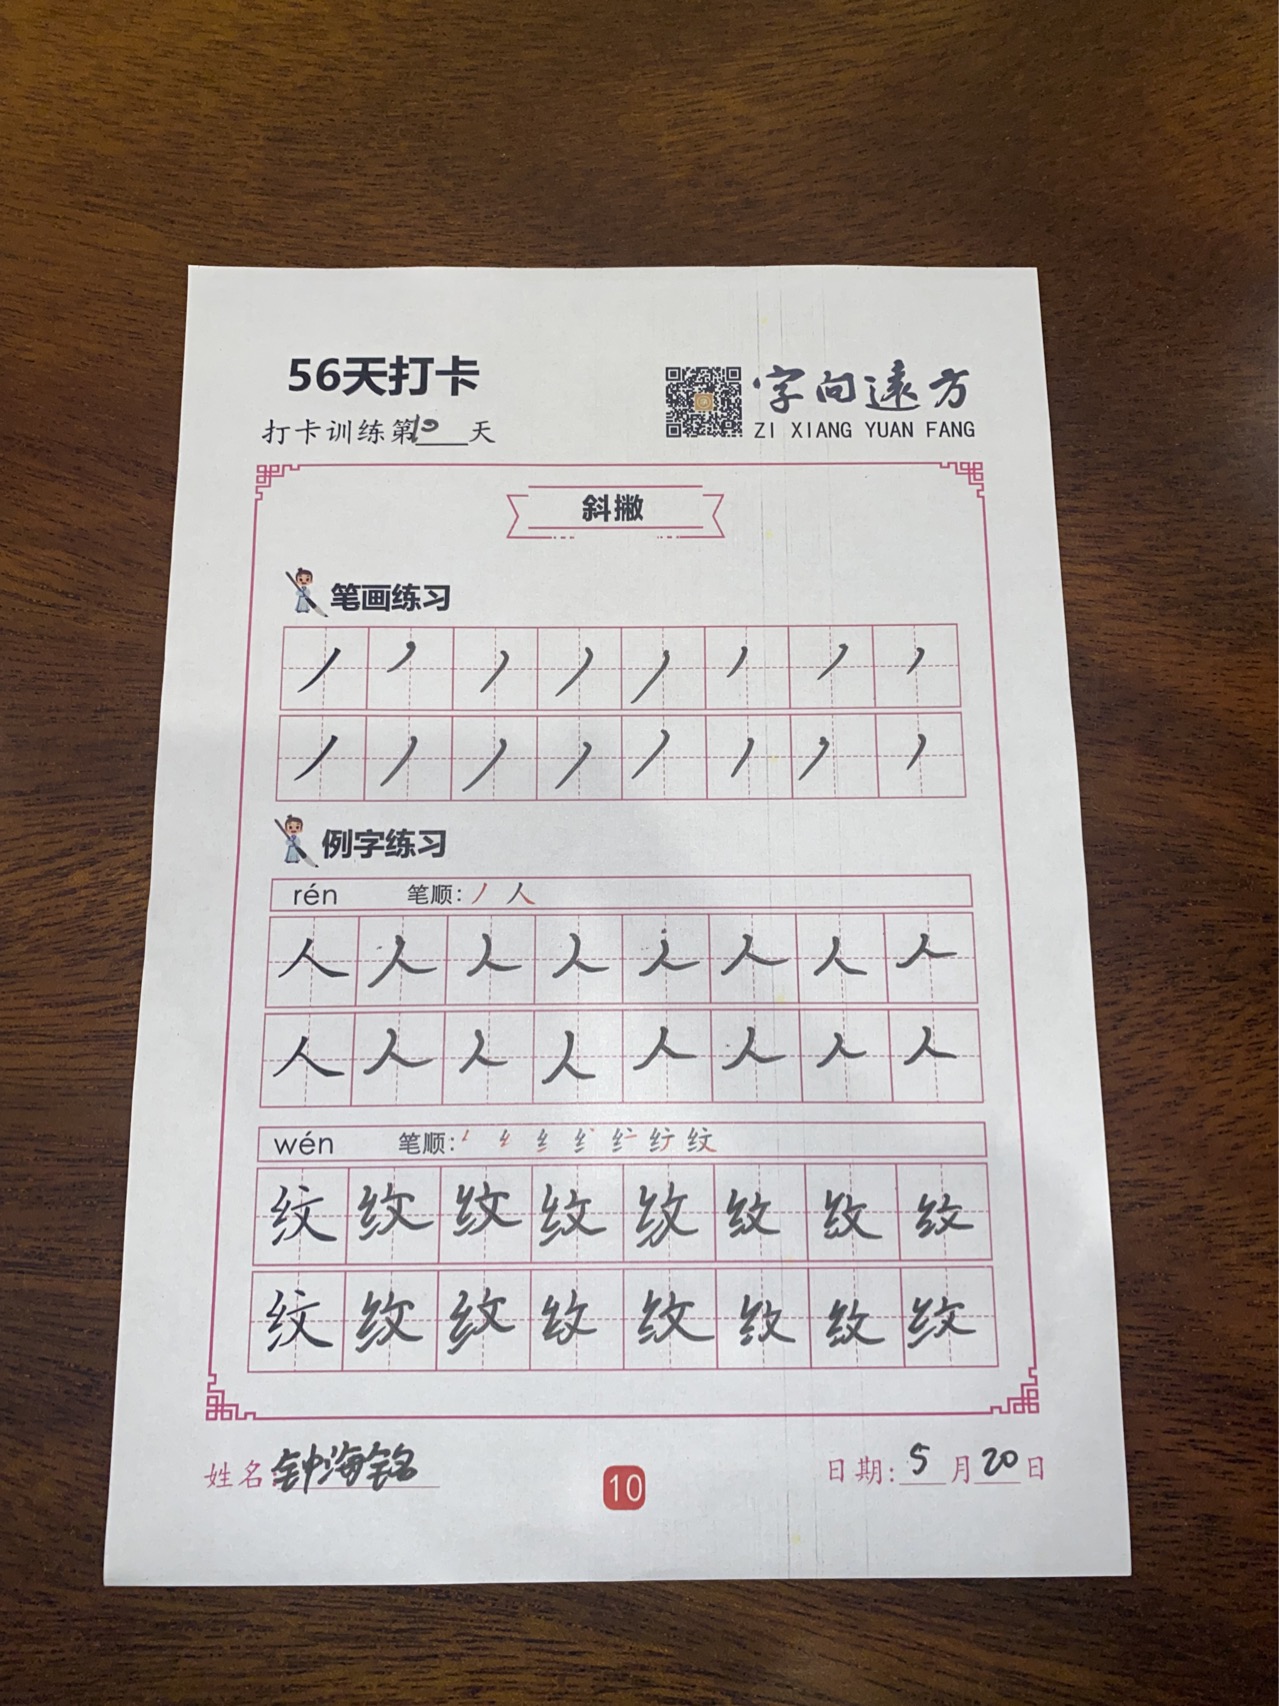 56天打卡
打卡训练第10天
字向遠方
ZI XIANG YUAN FANG
斜撇
笔画练习
丿 丿 丿 丿 丿 丿 丿 丿
丿 丿 丿 丿 丿 丿 丿 丿
例字练习
rén 笔顺: 丿 人
人 人 人 人 人 人 人 人
人 人 人 人 人 人 人 人
wén 笔顺:
纹 纹 纹 纹 纹 纹 纹 纹
纹 纹 纹 纹 纹 纹 纹 纹
姓名 钟海铭
10
日期: 5月20日